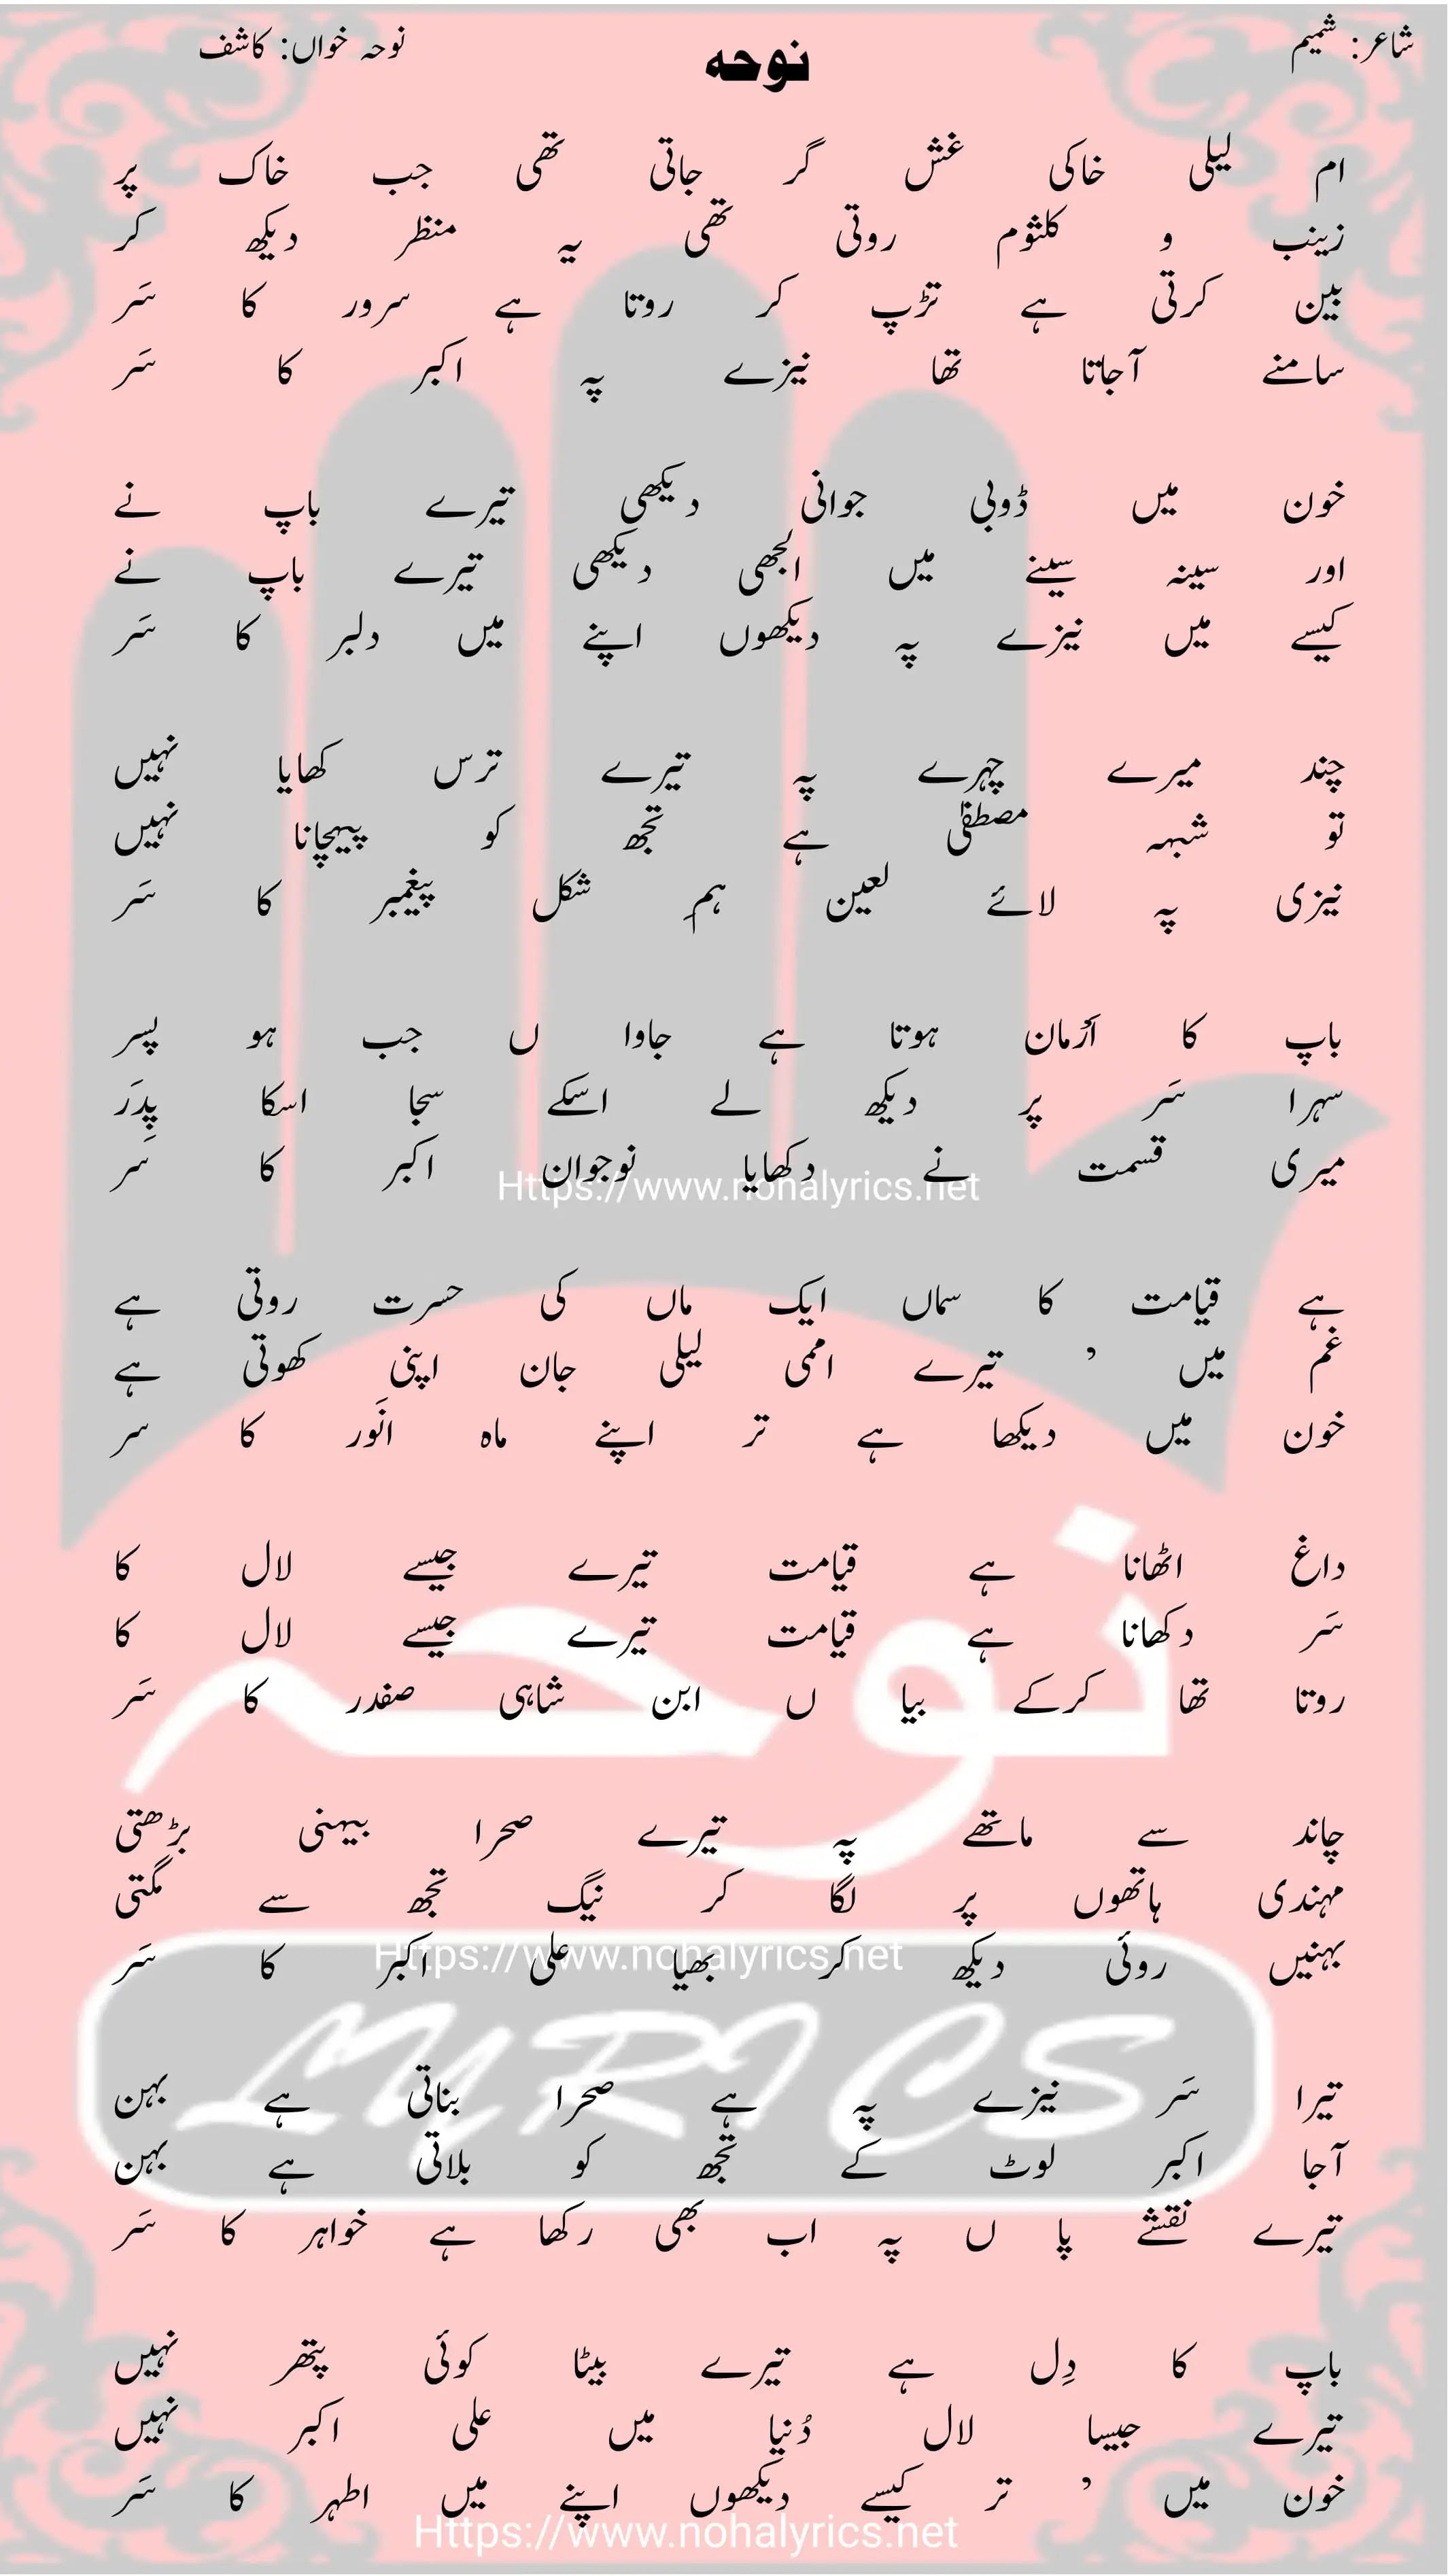 شاعر: شمیم
نوحہ
نوحہ خواں: کاشف
ام لیلی خاکی غش گر جاتی تھی جب خاک پر
زینب و کلثوم روتی تھی یہ منظر دیکھ کر
بین کرتی ہے تڑپ کر روتا ہے سرور کا سَر
سامنے آجاتا تھا نیزے پہ اکبر کا سَر
خون میں ڈوبی جوانی دیکھی تیرے باپ نے
اور سینہ سینے میں الجھی دیکھی تیرے باپ نے
کیسے میں نیزے پہ دیکھوں اپنے میں دلبر کا سَر
چند میرے چہرے پہ تیرے ترس کھایا نہیں
تو شبہہ مصطفیٰ ہے تجھ کو پیہچانا نہیں
نیزی پہ لائے لعین ہم شکل پیغمبر کا سَر
باپ کا اَرْمان ہوتا ہے جاوا ں جب ہو پسر
سہرا سَر پر دیکھ لے اسکے سجا اسکا پِدَر
میری قسمت نے دکھایا نوجوان اکبر کا سَر
Https://www.nohalyrics.net
ہے قیامت کا سماں ایک ماں کی حسرت روتی ہے
غم میں ’ تیرے اممی لیلی جان اپنی کھوتی ہے
خون میں دیکھا ہے تر اپنے ماہ انَور کا سر
داغ اٹھانا ہے قیامت تیرے جیسے لال کا
سَر دکھانا ہے قیامت تیرے جیسے لال کا
روتا تھا کرکے بیا ں ابن شاہی صفدر کا سَر
نوحہ
چاند سے ماتھے پہ تیرے صحرا بیہنی بڑھتی
مہندی ہاتھوں پر لگا کر نیگ تجھ سے مگتی
بہنیں روئی دیکھ کر بھیا علی اکبر کا سَر
Https://www.nohalyrics.net
LYRICS
تیرا سَر نیزے پہ ہے صحرا بناتی ہے بہن
آجا اکبر لوٹ کے تجھ کو بلاتی ہے بہن
تیرے نقشے پا ں پہ اب بھی رکھا ہے خواہر کا سَر
باپ کا دِل ہے تیرے بیٹا کوئی پتھر نہیں
تیرے جیسا لال دُنیا میں علی اکبر نہیں
خون میں ’ تر کیسے دیکھوں اپنے میں اطہر کا سَر
Https://www.nohalyrics.net